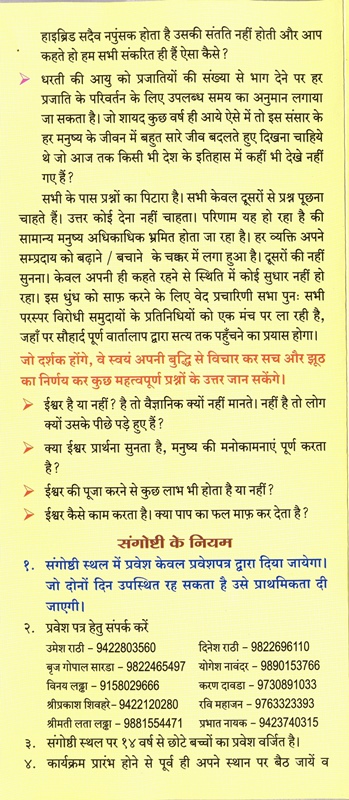 हाइब्रिड सदैव नपुंसक होता है उसकी संतति नहीं होती और आप
कहते हो हम सभी संकरित ही हैं ऐसा कैसे ?
धरती की आयु को प्रजातियों की संख्या से भाग देने पर हर
प्रजाति के परिवर्तन के लिए उपलब्ध समय का अनुमान लगाया
जा सकता है। जो शायद कुछ वर्ष ही आये ऐसे में तो इस संसार के
हर मनुष्य के जीवन में बहुत सारे जीव बदलते हुए दिखना चाहिये
थे जो आज तक किसी भी देश के इतिहास में कहीं भी देखे नहीं
गए हैं ?
सभी के पास प्रश्नों का पिटारा है। सभी केवल दूसरों से प्रश्न पूछना
चाहते हैं। उत्तर कोई देना नहीं चाहता। परिणाम यह हो रहा है की
सामान्य मनुष्य अधिकाधिक भ्रमित होता जा रहा है। हर व्यक्ति अपने
सम्प्रदाय को बढ़ाने / बचाने के चक्कर में लगा हुआ है। दूसरों की नहीं
सुनना। केवल अपनी ही कहते रहने से स्थिति में कोई सुधार नहीं हो
रहा। इस धुंध को साफ़ करने के लिए वेद प्रचारिणी सभा पुनः सभी
परस्पर विरोधी समुदायों के प्रतिनिधियों को एक मंच पर ला रही है,
जहाँ पर सौहार्द पूर्ण वार्तालाप द्वारा सत्य तक पहुँचने का प्रयास होगा।
जो दर्शक होंगे, वे स्वयं अपनी बुद्धि से विचार कर सच और झूठ
का निर्णय कर कुछ महत्वपूर्ण प्रश्नों के उत्तर जान सकेंगे।
ईश्वर है या नहीं ? है तो वैज्ञानिक क्यों नहीं मानते। नहीं है तो लोग
क्यों उसके पीछे पड़े हुए हैं ?
क्या ईश्वर प्रार्थना सुनता है, मनुष्य की मनोकामनाएं पूर्ण करता
है ?
ईश्वर की पूजा करने से कुछ लाभ भी होता है या नहीं ?
ईश्वर कैसे काम करता है। क्या पाप का फल माफ़ कर देता है ?
संगोष्ठी के नियम
१. संगोष्ठी स्थल में प्रवेश केवल प्रवेशपत्र द्वारा दिया जायेगा।
जो दोनों दिन उपस्थित रह सकता है उसे प्राथमिकता दी
जाएगी।
२. प्रवेश पत्र हेतु संपर्क करें
उमेश राठी – 9422803560 दिनेश राठी – 9822696110
बृज गोपाल सारडा – 9822465497 योगेश नावंदर – 9890153766
विनय लढ्ढा – 9158029666 करण दावडा – 9730891033
श्रीप्रकाश शिवहरे– 9422120280 रवि महाजन – 9763323393
श्रीमती लता लढ्ढा – 9881554471 प्रभात नायक – 9423740315
३. संगोष्ठी स्थल पर १४ वर्ष से छोटे बच्चों का प्रवेश वर्जित है।
४. कार्यक्रम प्रारंभ होने से पूर्व ही अपने स्थान पर बैठ जायें व